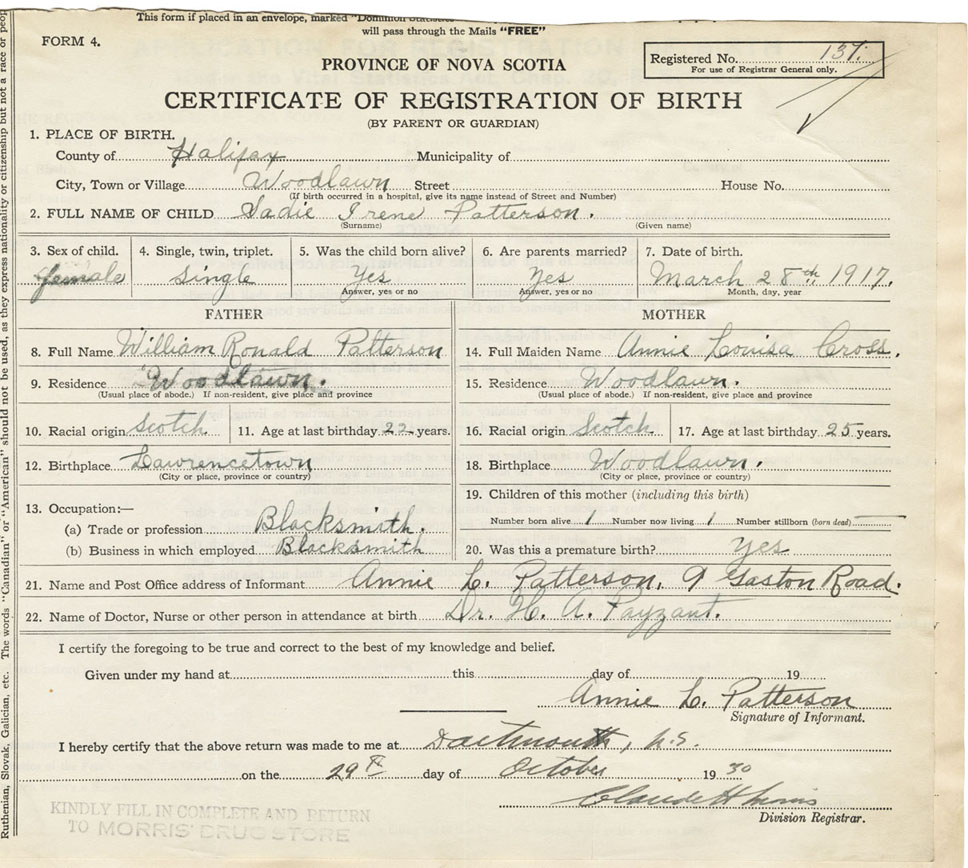 This form if placed in an envelope, marked "Dominion Statistics
will pass through the Mails "FREE"
FORM 4.
PROVINCE OF NOVA SCOTIA
Registered No. 137.
For use of Registrar General only.
CERTIFICATE OF REGISTRATION OF BIRTH
(BY PARENT OR GUARDIAN)
1. PLACE OF BIRTH.
County of Halifax Municipality of
City, Town or Village Woodlawn Street House No.
(If birth occurred in a hospital, give its name instead of Street and Number)
2. FULL NAME OF CHILD Sadie Irene Patterson.
(Surname) (Given name)
3. Sex of child. 4. Single, twin, triplet. 5. Was the child born alive? 6. Are parents married? 7. Date of birth.
female Single Yes Yes March 28th 1917.
Answer, yes or no Answer, yes or no Month, day, year
FATHER
8. Full Name William Ronald Patterson
9. Residence Woodlawn.
(Usual place of abode.) If non-resident, give place and province
10. Racial origin Scotch 11. Age at last birthday 22 years.
12. Birthplace Lawrencetown
(City or place, province or country)
13. Occupation:—
(a) Trade or profession Blacksmith.
(b) Business in which employed Blacksmith
MOTHER
14. Full Maiden Name Annie Louisa Cross.
15. Residence Woodlawn.
(Usual place of abode.) If non-resident, give place and province
16. Racial origin Scotch 17. Age at last birthday 25 years.
18. Birthplace Woodlawn.
(City or place, province or country)
19. Children of this mother (including this birth)
Number born alive 1 Number now living 1 Number stillborn (born dead)
20. Was this a premature birth? Yes
21. Name and Post Office address of Informant Annie L. Patterson, 9 Gaston Road.
22. Name of Doctor, Nurse or other person in attendance at birth Dr. H. A. Payzant.
I certify the foregoing to be true and correct to the best of my knowledge and belief.
Given under my hand at this day of 19
Annie L. Patterson
Signature of Informant.
I hereby certify that the above return was made to me at Dartmouth, N.S.
on the 29th day of October 1930
Claude H
Division Registrar.
KINDLY FILL IN COMPLETE AND RETURN
TO MORRIS' DRUG STORE
Ruthenian, Slovak, Galician, etc. The words "Canadian" or "American" should not be used, as they express nationality or citizenship but not a race or